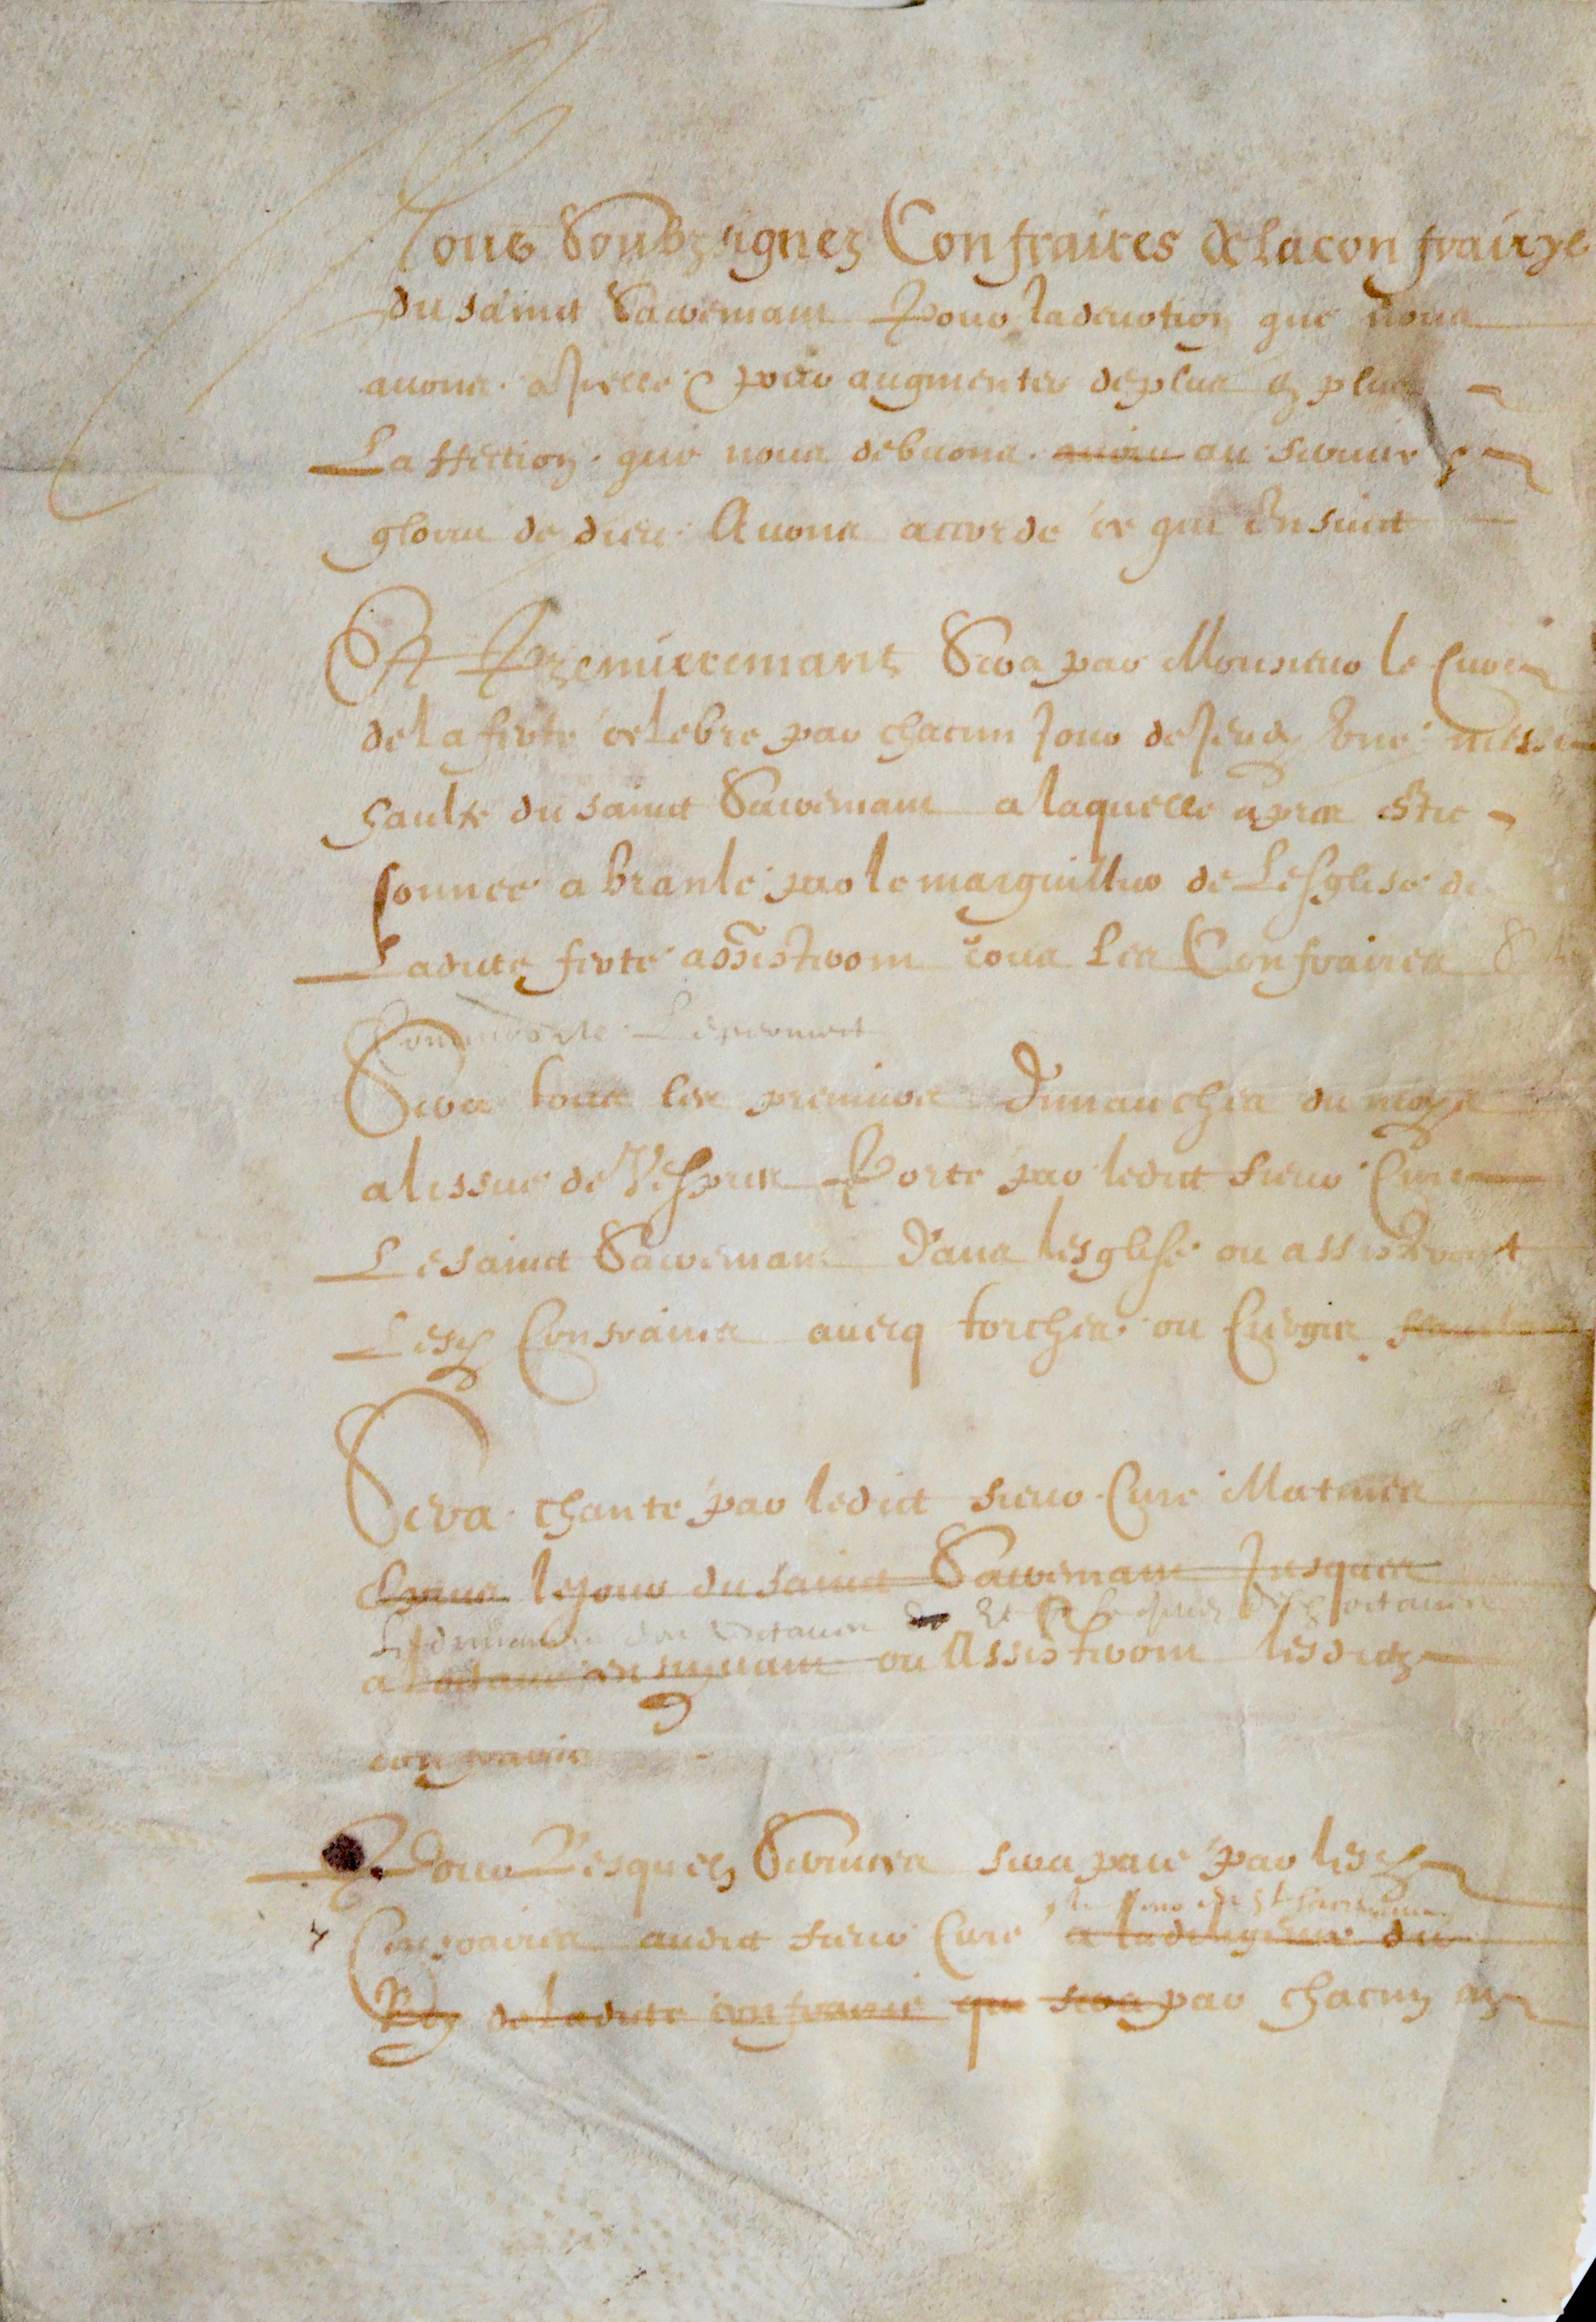 Nous Soubzsignez Confraires de la confrairye
du sainct Sacremant Pour la devotion que nous
avons a Icelle & pour augmenter de plus en plus
Laffection que nous debvons avoir au service &
gloire de dieu Avons accorde ce qui Ensuict
Et Premierement Sera par Monsieur le Cure
de la ferte celebre par chacun Jour de Jeudy Une messe
haulte du sainct Sacremant a laquelle apres estre
sonnee a branle par le marguillier de Lesglise de
Ladicte ferte assisteront tous Les Confraires
Sera tous les premiers Dimanches du moys
a lissue de Vespres Porte par ledict sieur Cure
Le sainct Sacremant Dans lesglise ou assisteront
Lesd Confraires avecq torches ou Cierges
Sera chante par ledict sieur Cure Matines
Depuis le jour du sainct Sacremant Jusques
a loctave ensuivant ou Assisteront lesdictz
confraires
Pour Lesquelz Services sera paie par lesd
Confraires audict sieur Cure a la diligence du
Roy de ladicte confrairie qui sera par chacun an